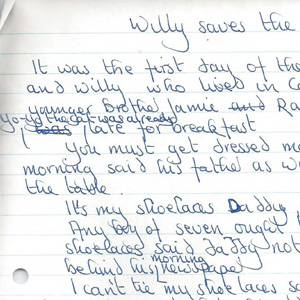 Willy saves the
It was the first day of the
and Willy who lived in C
younger brothe Jamie and Ra
yo-yo the cat was already
I was late for breakfast
You must get dressed mo
morning said his father as W
the table.
It's my shoelaces Daddy
Any boy of seven ought t
shoelaces said Daddy not
morning
behind his newspape
I can't tie my shoelaces so